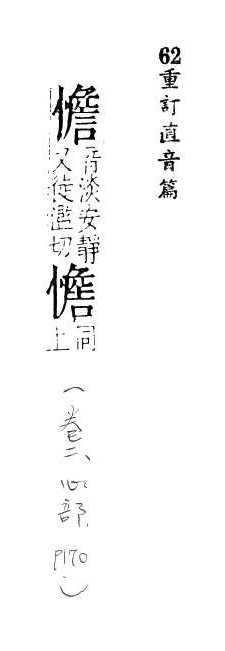 62重訂直音篇
憺
音淡安靜
又徒濫切
同
上
（卷二、心部 P170）